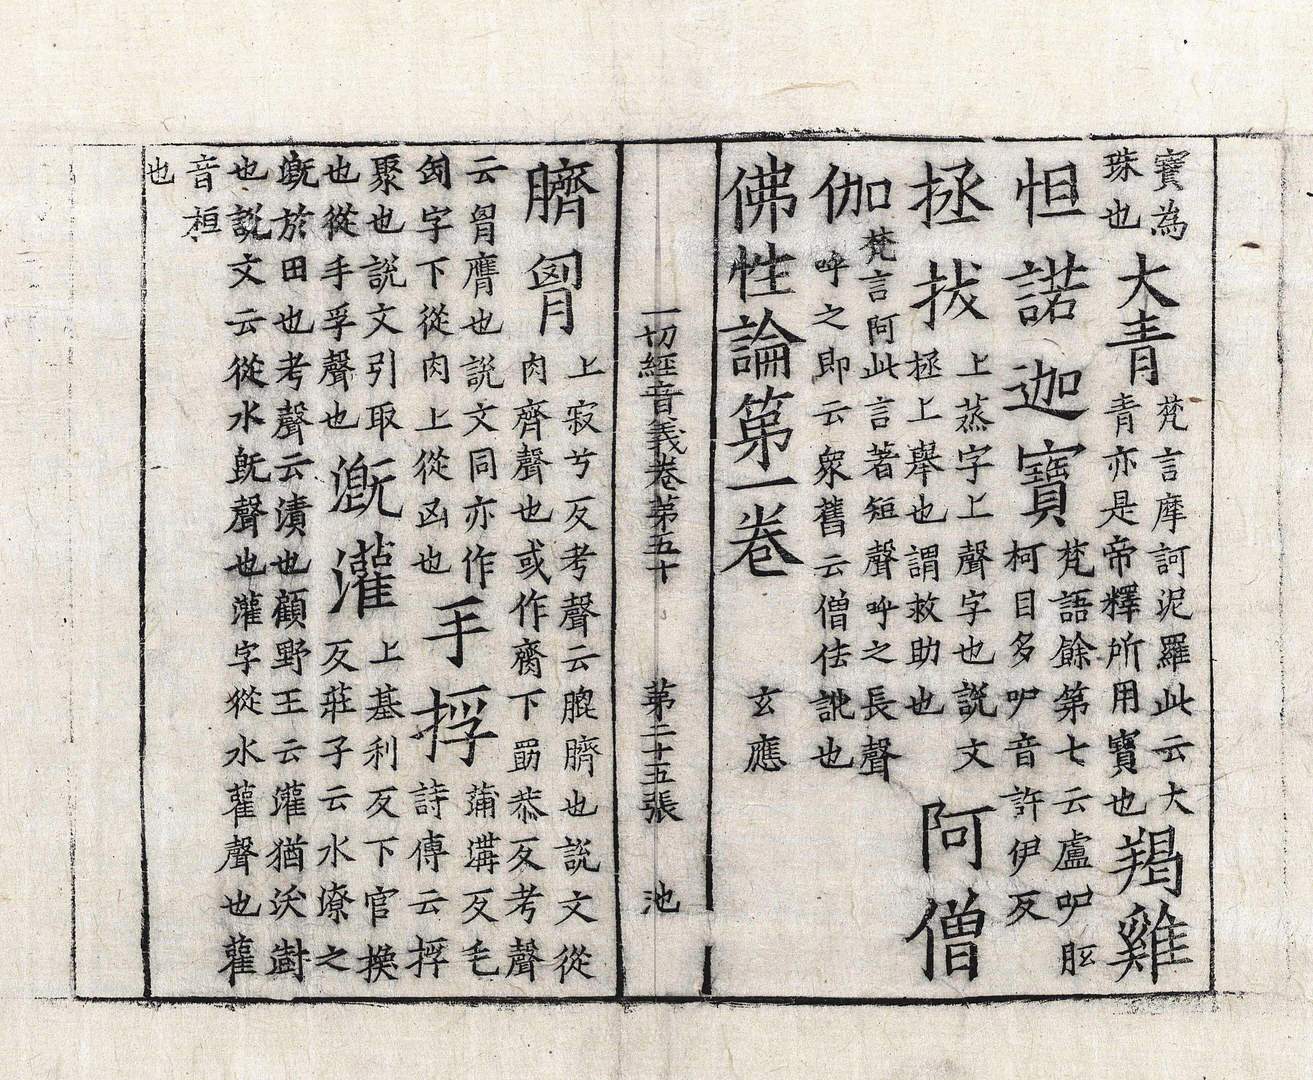 寶為
珠也
大青
梵言摩訶泥羅此云大
青亦是帝釋所用寶也
羯雞
怛諾迦寶
梵語餘第七云盧
柯目多
音許伊反
拯拔
上蒸字上聲字也說文
拯上舉也謂救助也
阿僧
伽
梵言阿此言著短聲呼之長聲
呼之即云眾舊云僧佉訛也
佛性論第一卷
玄應
一切經音義卷第五十
第二十五張
池
臍𦚾
上寂兮反考聲云腽臍也說文從
肉齊聲也或作𪗋下勗恭反考聲
云𦚾膺也說文同亦作
匈字下從肉上從凶也
手捊
蒲溝反毛
詩傳云捊
聚也說文引取
也從手孚聲也
溉灌
上基利反下官換
反莊子云水潦之
溉於田也考聲云漬也顧野王云灌猶沃澍
也說文云從水既聲也灌字從水雚聲也雚
音桓
也